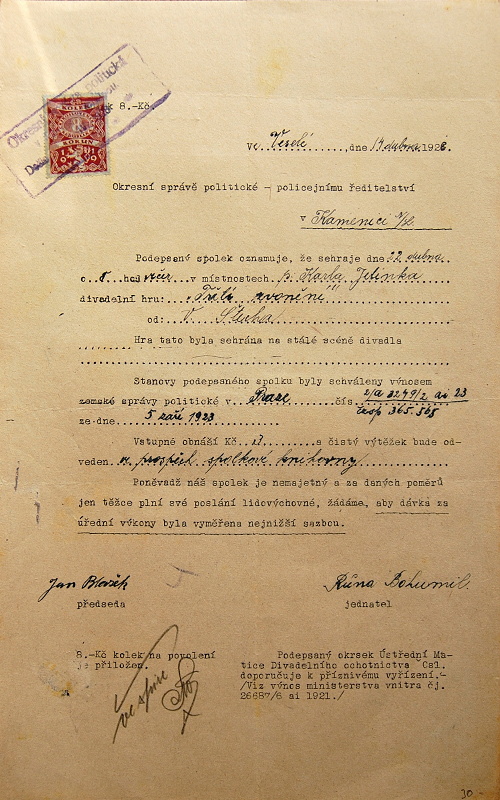 Okresní politická
k 8.-Kč
KOLEK
KORUN
Ve Veselí, dne 14 dubna 1926.
Okresní správě politické - policejnímu ředitelství
v Kamenici n/L.
Podepsaný spolek oznamuje, že sehraje dne 22 dubna
o 8 hod večer v místnostech p. Karla Jelínka
divadelní hru: „Třetí zvonění"
od: V. Štecha
Hra tato byla sehrána na stálé scéně divadla
Stanovy podepsaného spolku byly schváleny výnosem
zemské správy politické v Praze čís. 2/a 3249/2 ai 23
ze dne 5 září 1923 čsp 365.565
Vstupné obnáší Kč a čistý výtěžek bude od-
veden ve prospěch spolkové knihovny
Poněvadž náš spolek je nemajetný a za daných poměrů
jen těžce plní své poslání lidovýchovné, žádáme, aby dávka za
úřední výkony byla vyměřena nejnižší sazbou.
Jan Růna Bohumil.
předseda jednatel
8.-Kč kolek na povolení
je přiložen.
Podepsaný okrsek Ústřední Ma-
tice Divadelního ochotnictva Čsl.
doporučuje k příznivému vyřízení.-
/Viz výnos ministerstva vnitra čj.
26687/6 ai 1921./
ve spise
30